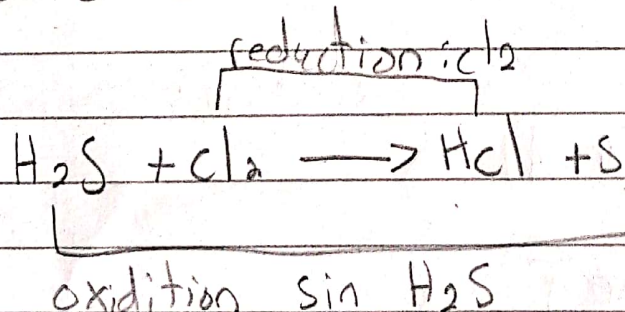 reduction : cl2
H2S + cl2 → Hcl + S
oxidition sin H2S